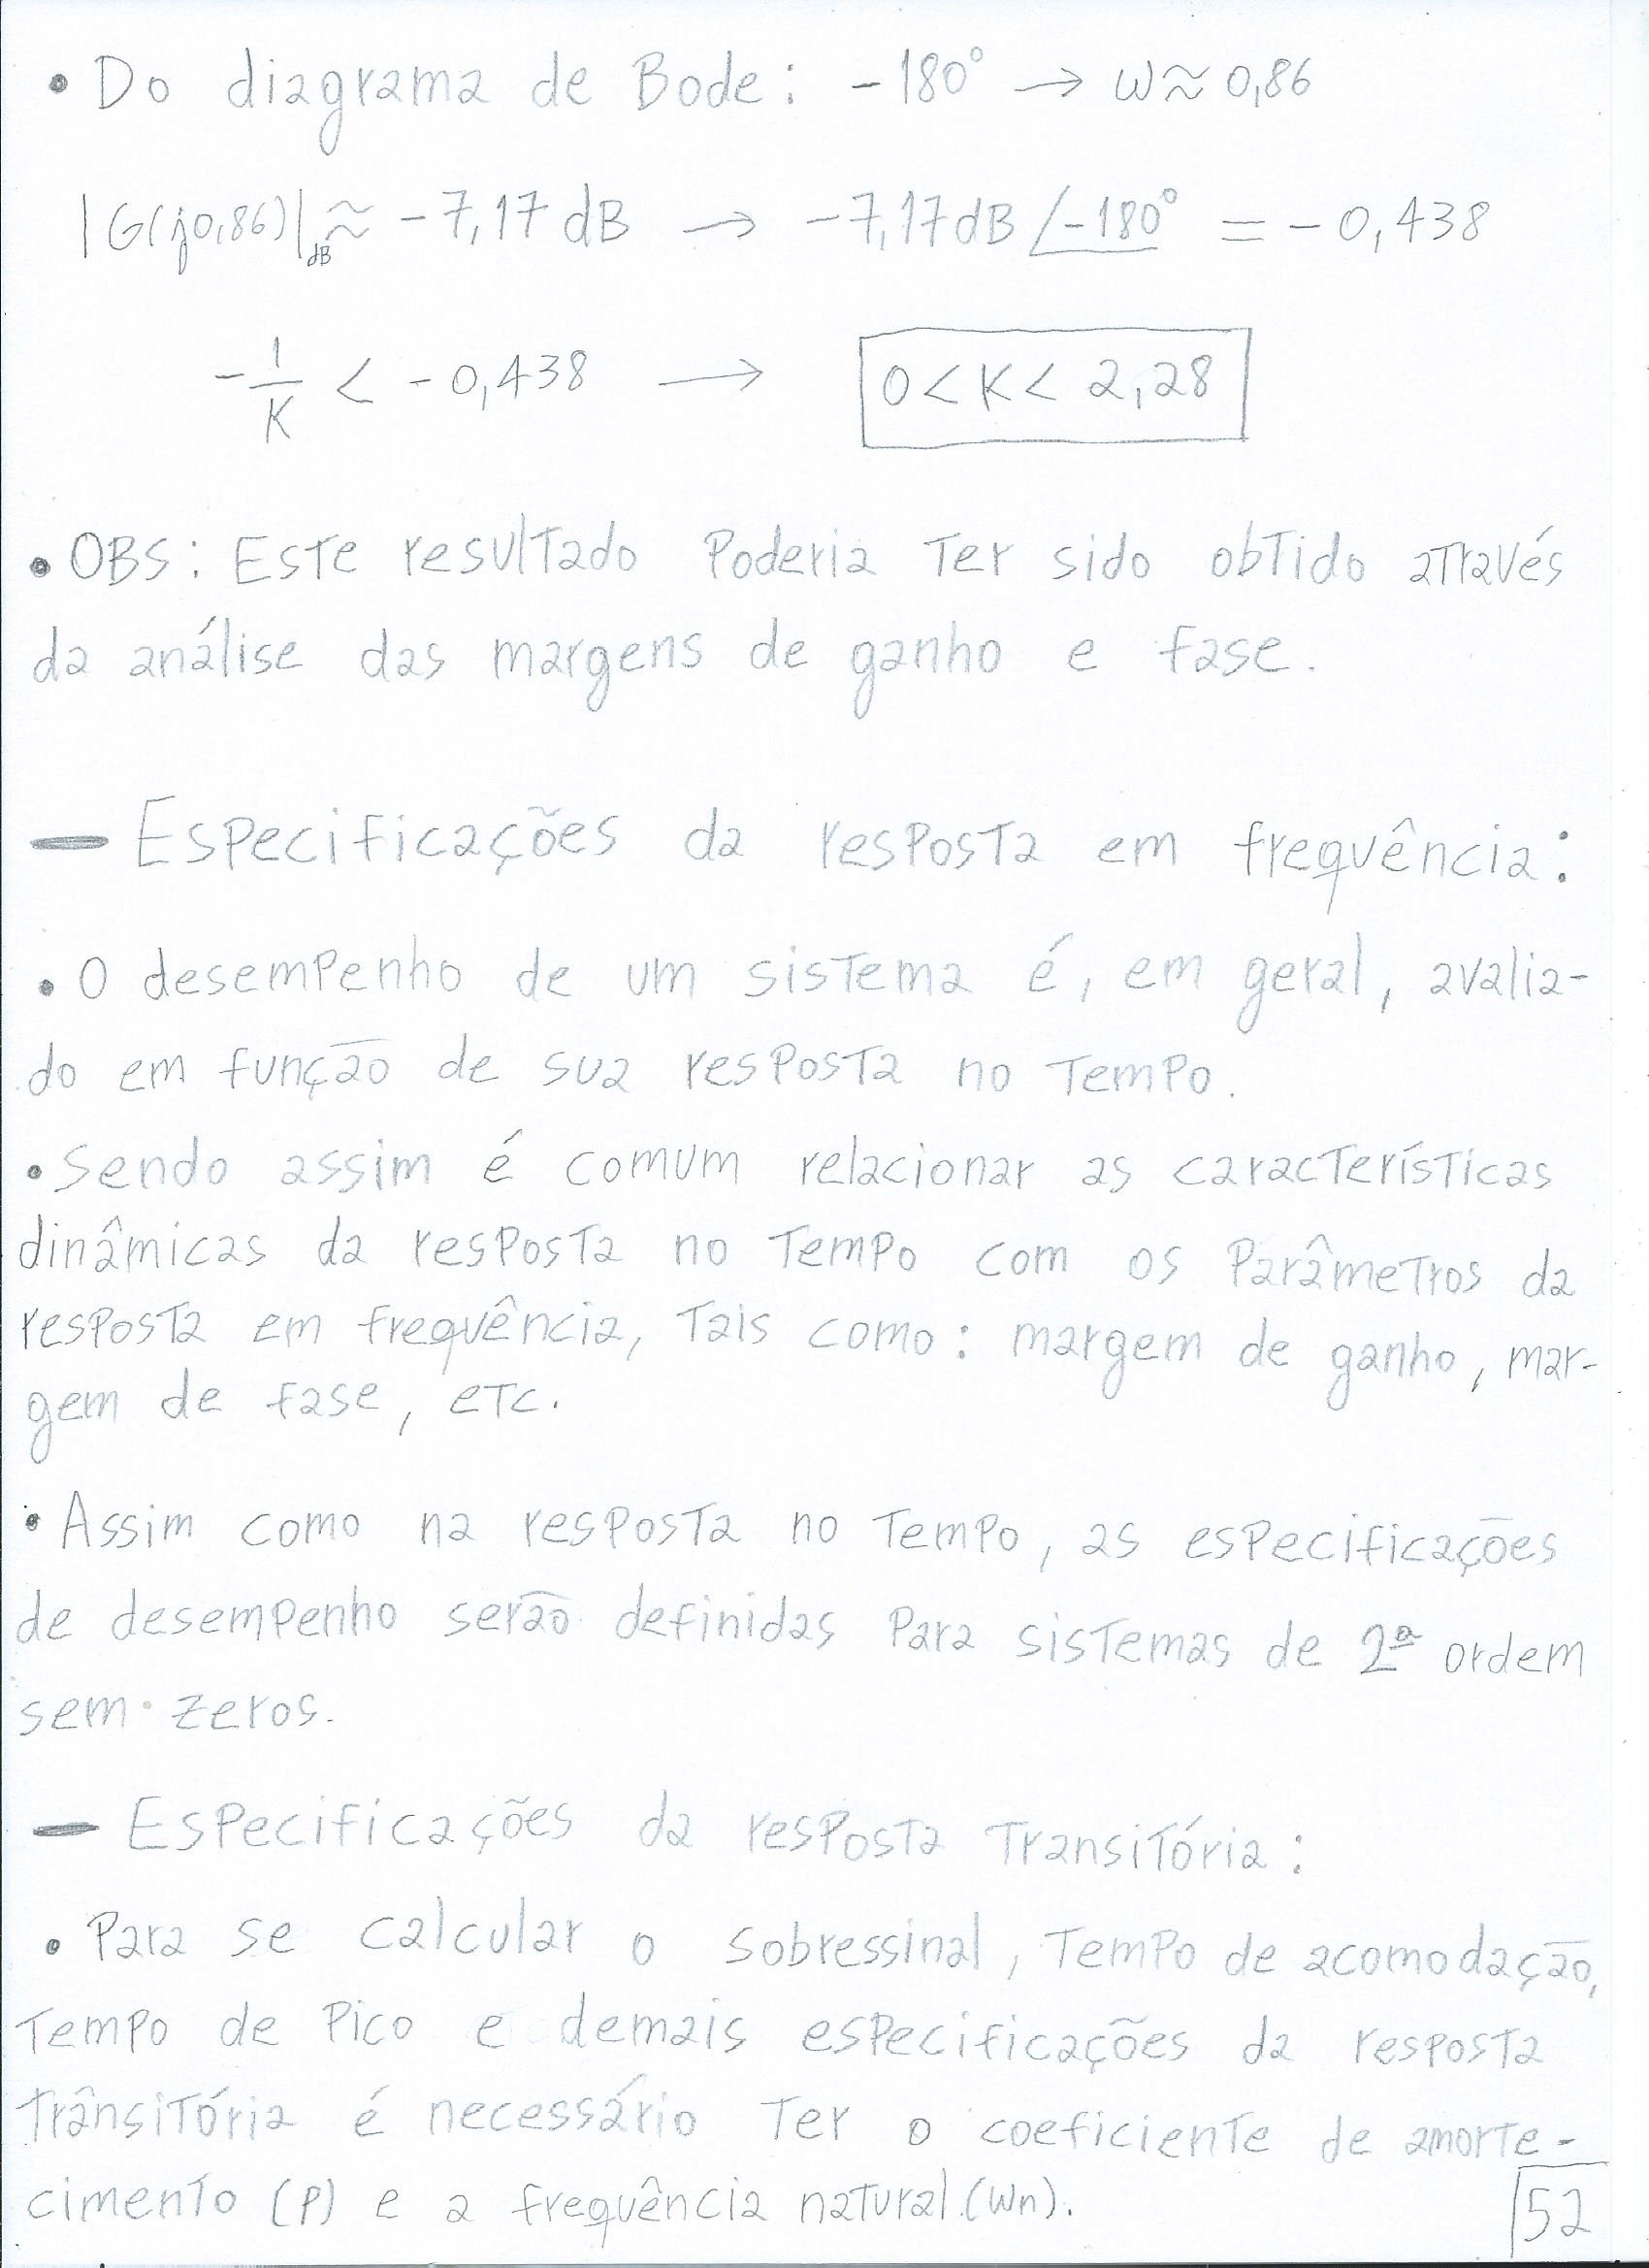 • Do diagrama de Bode: -180° → ω ≈ 0,86
|G(j0,86)|dB ≈ -7,17 dB → -7,17dB ∠-180° = -0,438
-1/K < -0,438 → 0 < K < 2,28
• OBS: Este resultado Poderia Ter sido obtido através
da análise das margens de ganho e fase.
— Especificações da resposta em frequência:
• O desempenho de um sistema é, em geral, avalia-
do em função de sua resposta no Tempo.
• Sendo assim é comum relacionar as características
dinâmicas da resposta no Tempo com os Parâmetros da
resposta em frequência, Tais como: margem de ganho, mar-
gem de fase, etc.
• Assim como na resposta no Tempo, as especificações
de desempenho serão definidas Para sistemas de 2ª ordem
sem zeros.
— Especificações da resposta Transitória:
• Para se calcular o sobressinal, Tempo de acomodação,
Tempo de Pico e demais especificações da resposta
trânsitória é necessário Ter o coeficiente de amorte-
cimento (ρ) e a frequência natural (Wn).
52